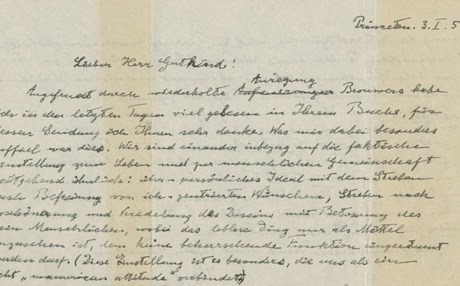 Princeton. 3. I. 5
Lieber Herr Gutkind!
Angefeuert durch wiederholte Anregung Brouwers habe
ich in den letzten Tagen viel gelesen in Ihrem Buche, für
dessen Sendung ich Ihnen sehr danke. Was mir dabei besonders
auffiel war dies. Wir sind einander inbezug auf die faktische
Einstellung zum Leben und zur menschlichen Gemeinschaft
weitgehend ähnlich: über-persönliches Ideal mit dem Streben
nach Befreiung von ich-zentrierten Wünschen, Streben nach
Verschönerung und Veredelung des Daseins mit Betonung des
rein Menschlichen, wobei das leblose Ding nur als Mittel
anzusehen ist, dem keine beherrschende Funktion eingeräumt
werden darf. (Diese Einstellung ist es besonders, die uns als ein
echt „unamerican attitude“ verbindet)